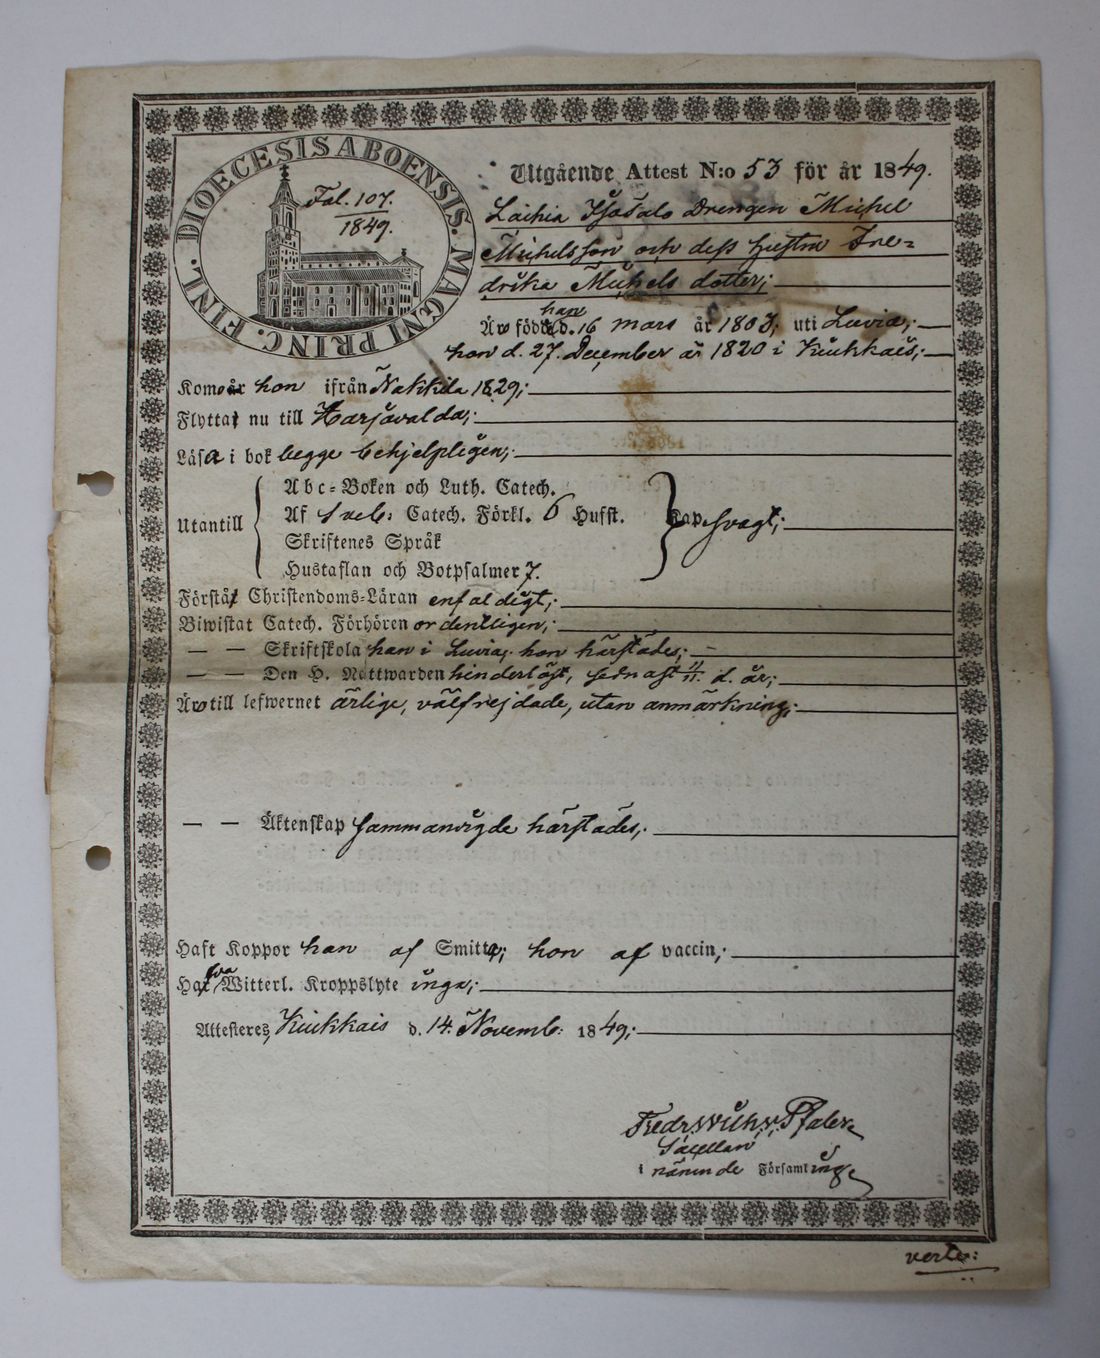 DIOECESIS ABOENSIS. MAGNI PRINC. FINL.
Fol. 107.
1849.
Utgående Attest N:o 53 för år 1849.
Drengen Michel
Michelsson och dess hustru Fre-
drika Michels dotter;
han
Äro födde d. 16 mars år 1803; uti Luvia;
hon d. 27 December år 1820 i Kiukkais;
Kom hon ifrån Nakkila 1829;
Flytta nu till Harjavalda;
Läsa i bok begge behjelpligen;
Utantill
Abc-Boken och Luth. Catech.
Af Sveb: Catech. Förkl. 6 Husst.
Skriftenes Språk
Hustaflan och Botpsalmer 7.
Kap. svagt;
Förstå Christendoms-Läran enfaldigt;
Biwistat Catech. Förhören ordentligen;
— — Skriftskola han i Luvia; hon härstädes;
— — Den H. Nattwarden hinderlöst, sednast 4/11 d. år;
Äro till lefwernet ärlige, välfrejdade, utan anmärkning;
— — Äktenskap sammanvigde härstädes;
Haft Koppor han af Smitta; hon af vaccin;
Hafva Witterl. Kroppslyte inga;
Attesteres, Kiukkais d. 14. Novemb: 1849;
Fredr. Wilh. v. Pfaler
Sacellan
i nämnde Församling
verte: